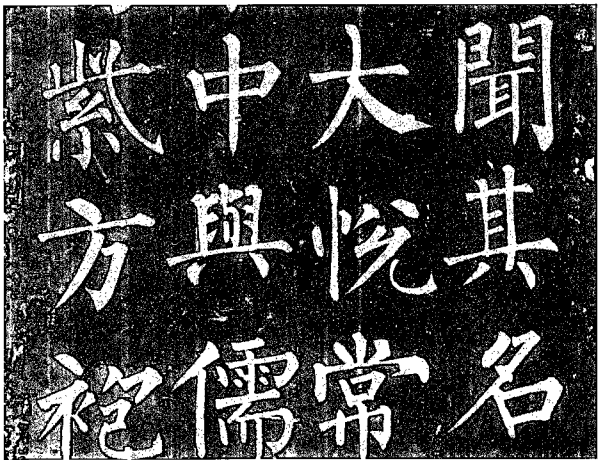 聞其名
大悅常
中與儒
紫方袍